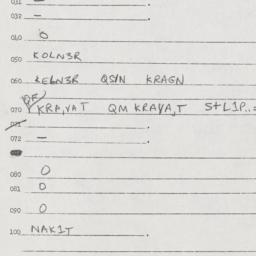 031 –
032 – .
040 O
050 KOLNSR
060 KELNSR QSYN KRAGN
QF
070 KRA,VAT QM KRAVA,T S+L1P..=
071
072 – .
080 O
081 O
090 O
100 NAK1T .